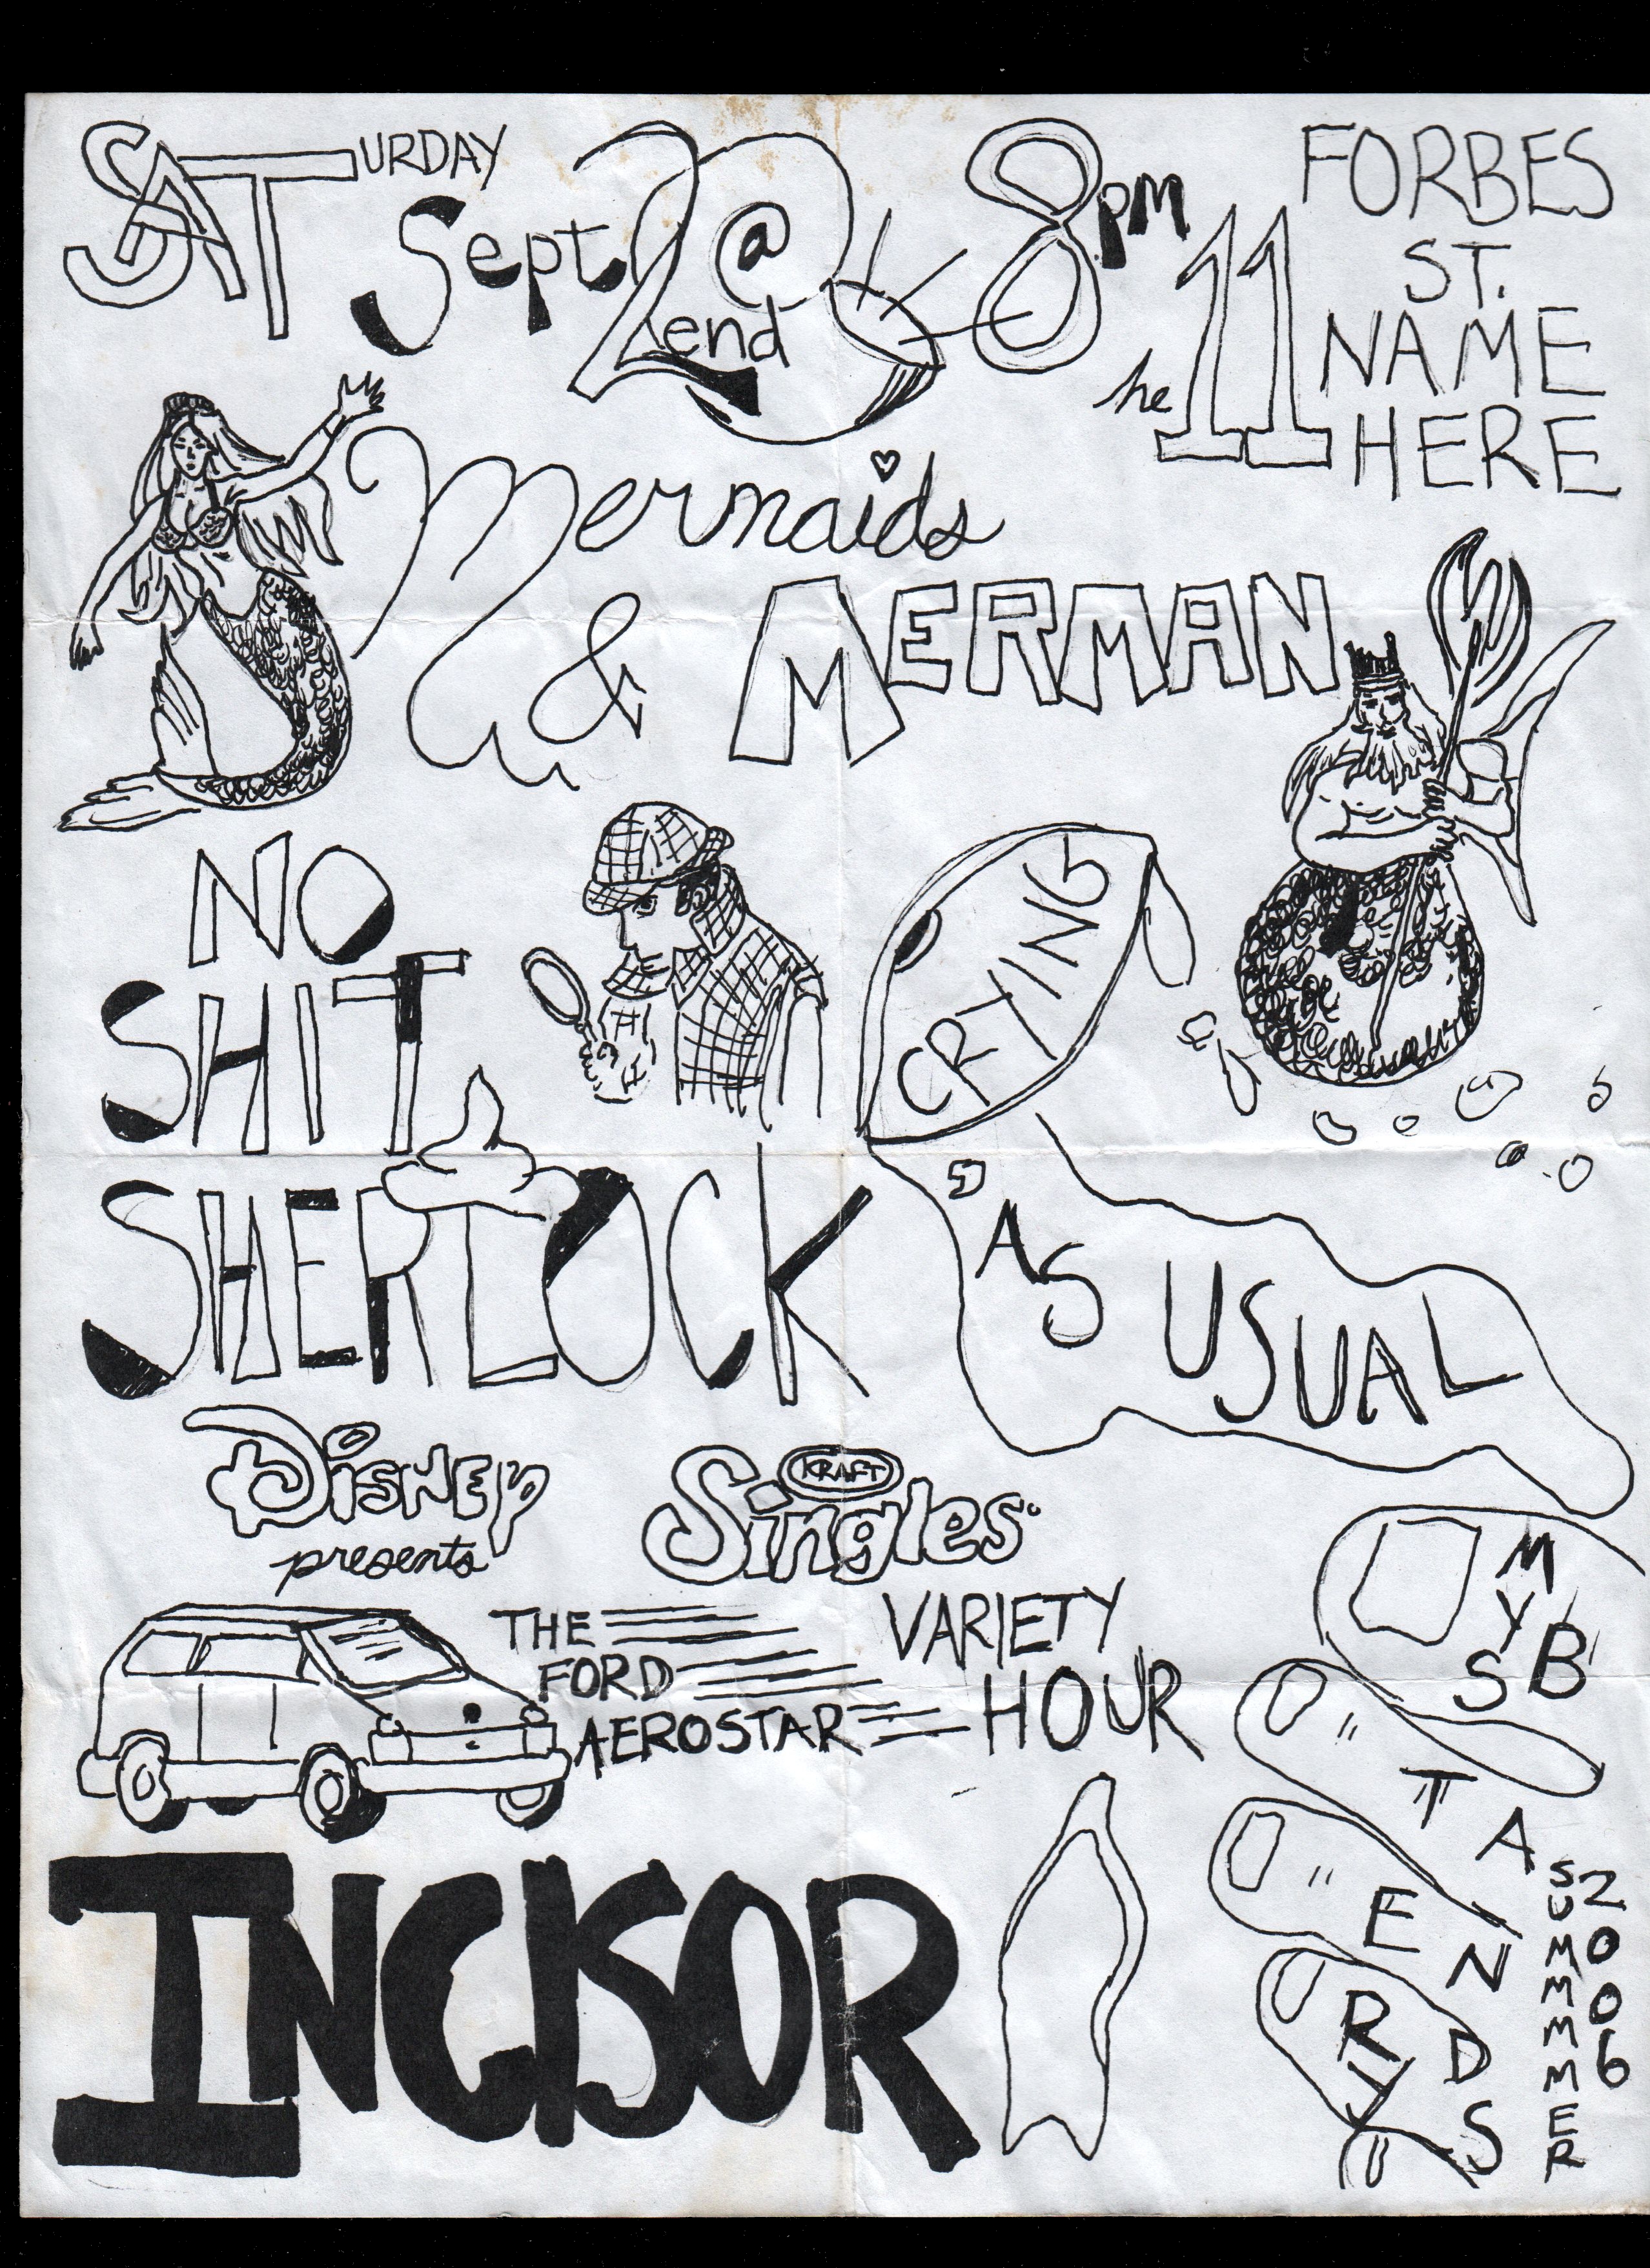 SATURDAY
Sept 2end @ 8pm
he 11
FORBES
ST.
NAME
HERE
Mermaids
& MERMAN
NO
SHIT,
SHERLOCK
CRYING
AS USUAL
DISNEY
presents
KRAFT
Singles
THE
FORD
AEROSTAR
VARIETY
HOUR
MY
INCISOR
SUMMMMER
2006